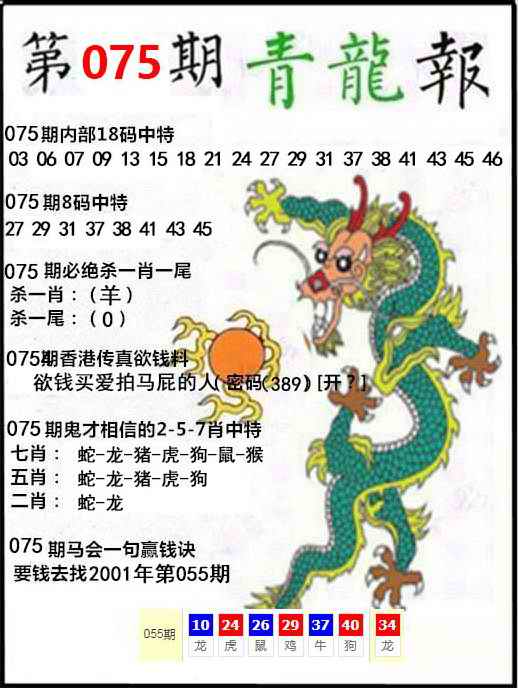 第075期 青龍報
075期内部18码中特
03 06 07 09 13 15 18 21 24 27 29 31 37 38 41 43 45 46
075期8码中特
27 29 31 37 38 41 43 45
075 期必绝杀一肖一尾
杀一肖：（羊）
杀一尾：（0）
075期香港传真欲钱料
欲钱买爱拍马屁的人( 密码(389) [开？]
075期鬼才相信的2-5-7肖中特
七肖： 蛇-龙-猪-虎-狗-鼠-猴
五肖： 蛇-龙-猪-虎-狗
二肖： 蛇-龙
075 期马会一句赢钱诀
要钱去找2001年第055期
055期 10 24 26 29 37 40 34
龙 虎 鼠 鸡 牛 狗 龙